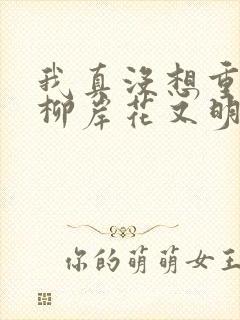 我真没想重
柳岸花又明
你的萌萌女王